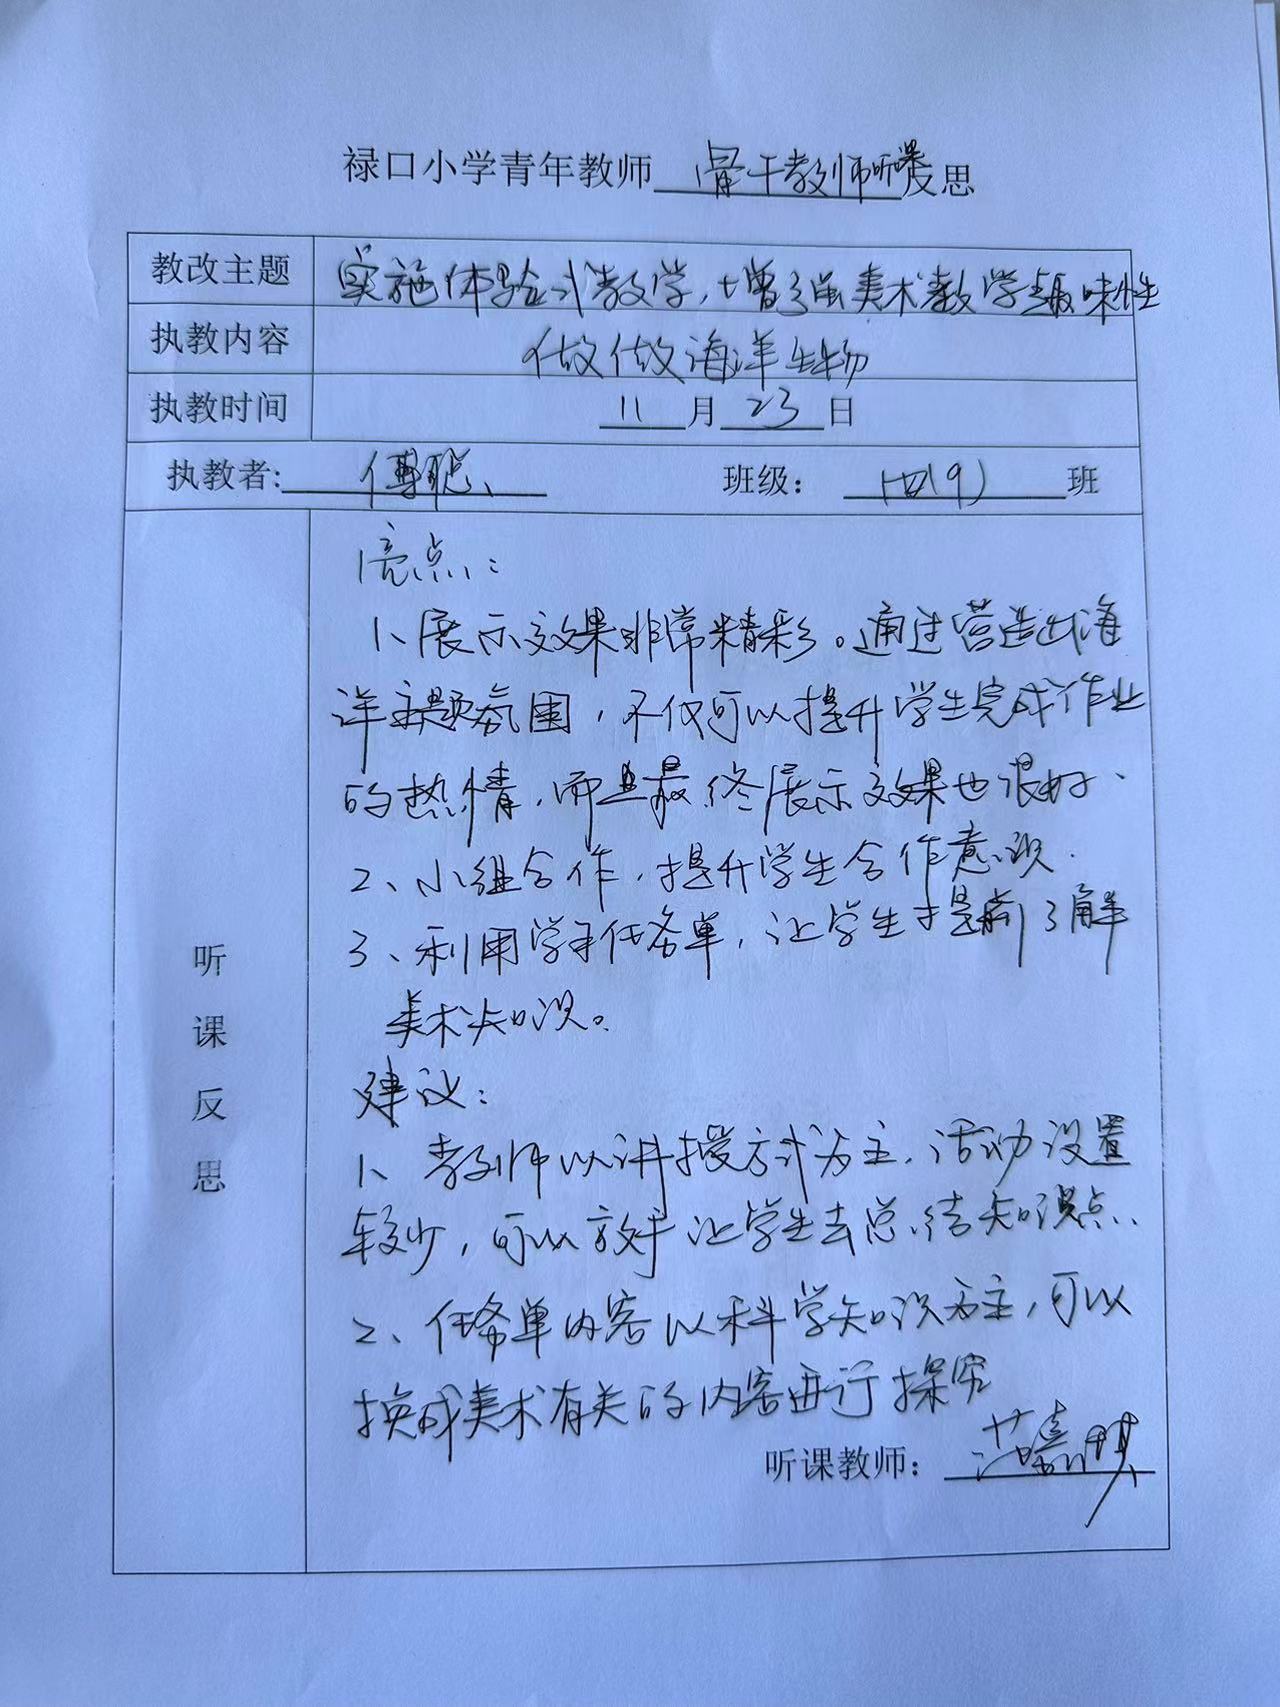 禄口小学青年教师 骨干教师听课反思
教改主题 实施体验式教学，增强美术教学趣味性
执教内容 做做海洋生物
执教时间 11月23日
执教者: 傅聪 班级： 四（9）班
听课反思
亮点：
1、展示效果非常精彩。通过营造出海
洋主题氛围，不仅可以提升学生完成作业
的热情，而且最终展示效果也很好、
2、小组合作，提升学生合作意识.
3、利用学习任务单，让学生提前了解
美术知识。
建议：
1、教师以讲授方式为主，活动设置
较少，可以放手让学生去总结知识点、
2、任务单内容以科学知识为主，可以
换成美术有关的内容进行探究
听课教师：范嘉琪